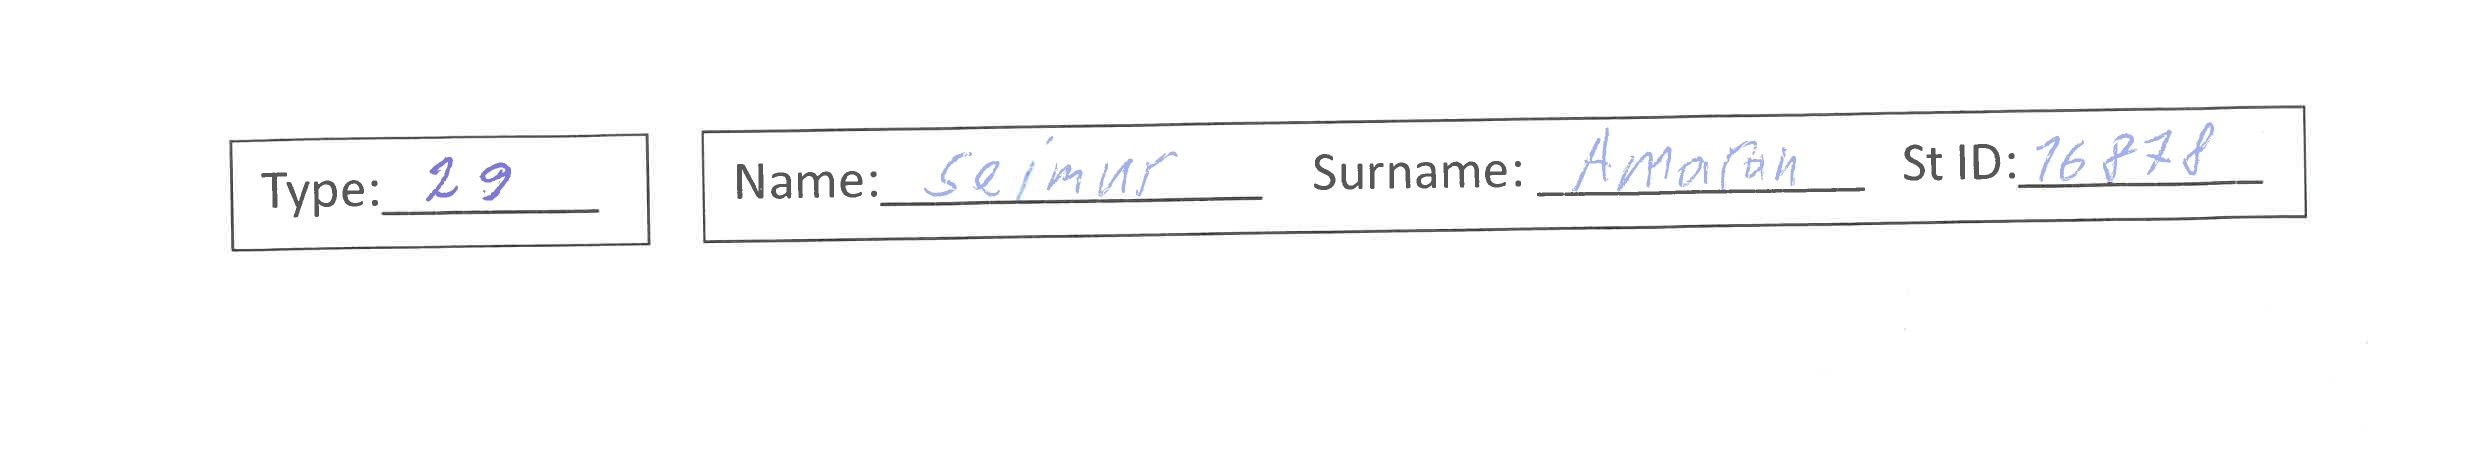 Type: 29 Name: Seimur Surname: Amaran St ID: 16878